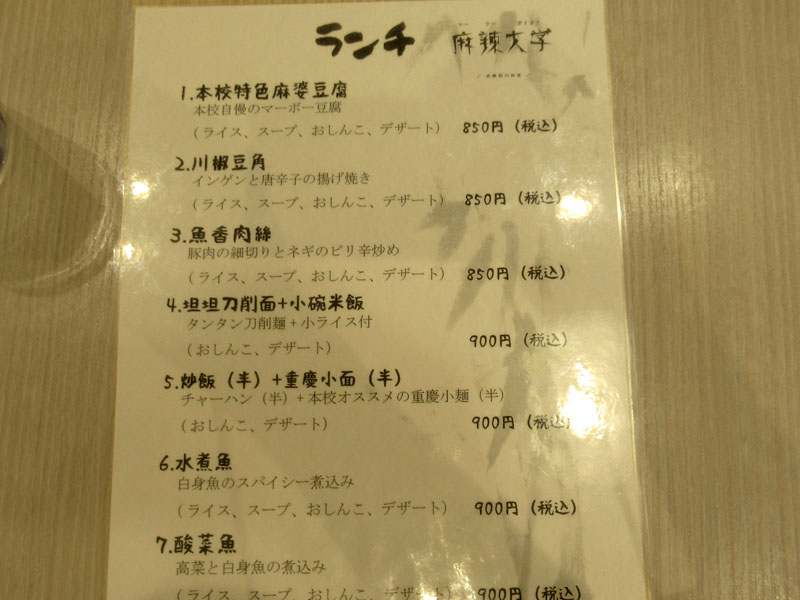 ランチ 麻辣大学
1.本校特色麻婆豆腐
本校自慢のマーボー豆腐
(ライス、スープ、おしんこ、デザート) 850円(税込)
2.川椒豆角
インゲンと唐辛子の揚げ焼き
(ライス、スープ、おしんこ、デザート) 850円(税込)
3.魚香肉絲
豚肉の細切りとネギのピリ辛炒め
(ライス、スープ、おしんこ、デザート) 850円(税込)
4.坦坦刀削面+小碗米飯
タンタン刀削麺+小ライス付
(おしんこ、デザート) 900円(税込)
5.炒飯(半)+重慶小面(半)
チャーハン(半)+本校オススメの重慶小麺(半)
(おしんこ、デザート) 900円(税込)
6.水煮魚
白身魚のスパイシー煮込み
(ライス、スープ、おしんこ、デザート) 900円(税込)
7.酸菜魚
高菜と白身魚の煮込み
(ライス、スープ、おしんこ、デザート) 900円(税込)